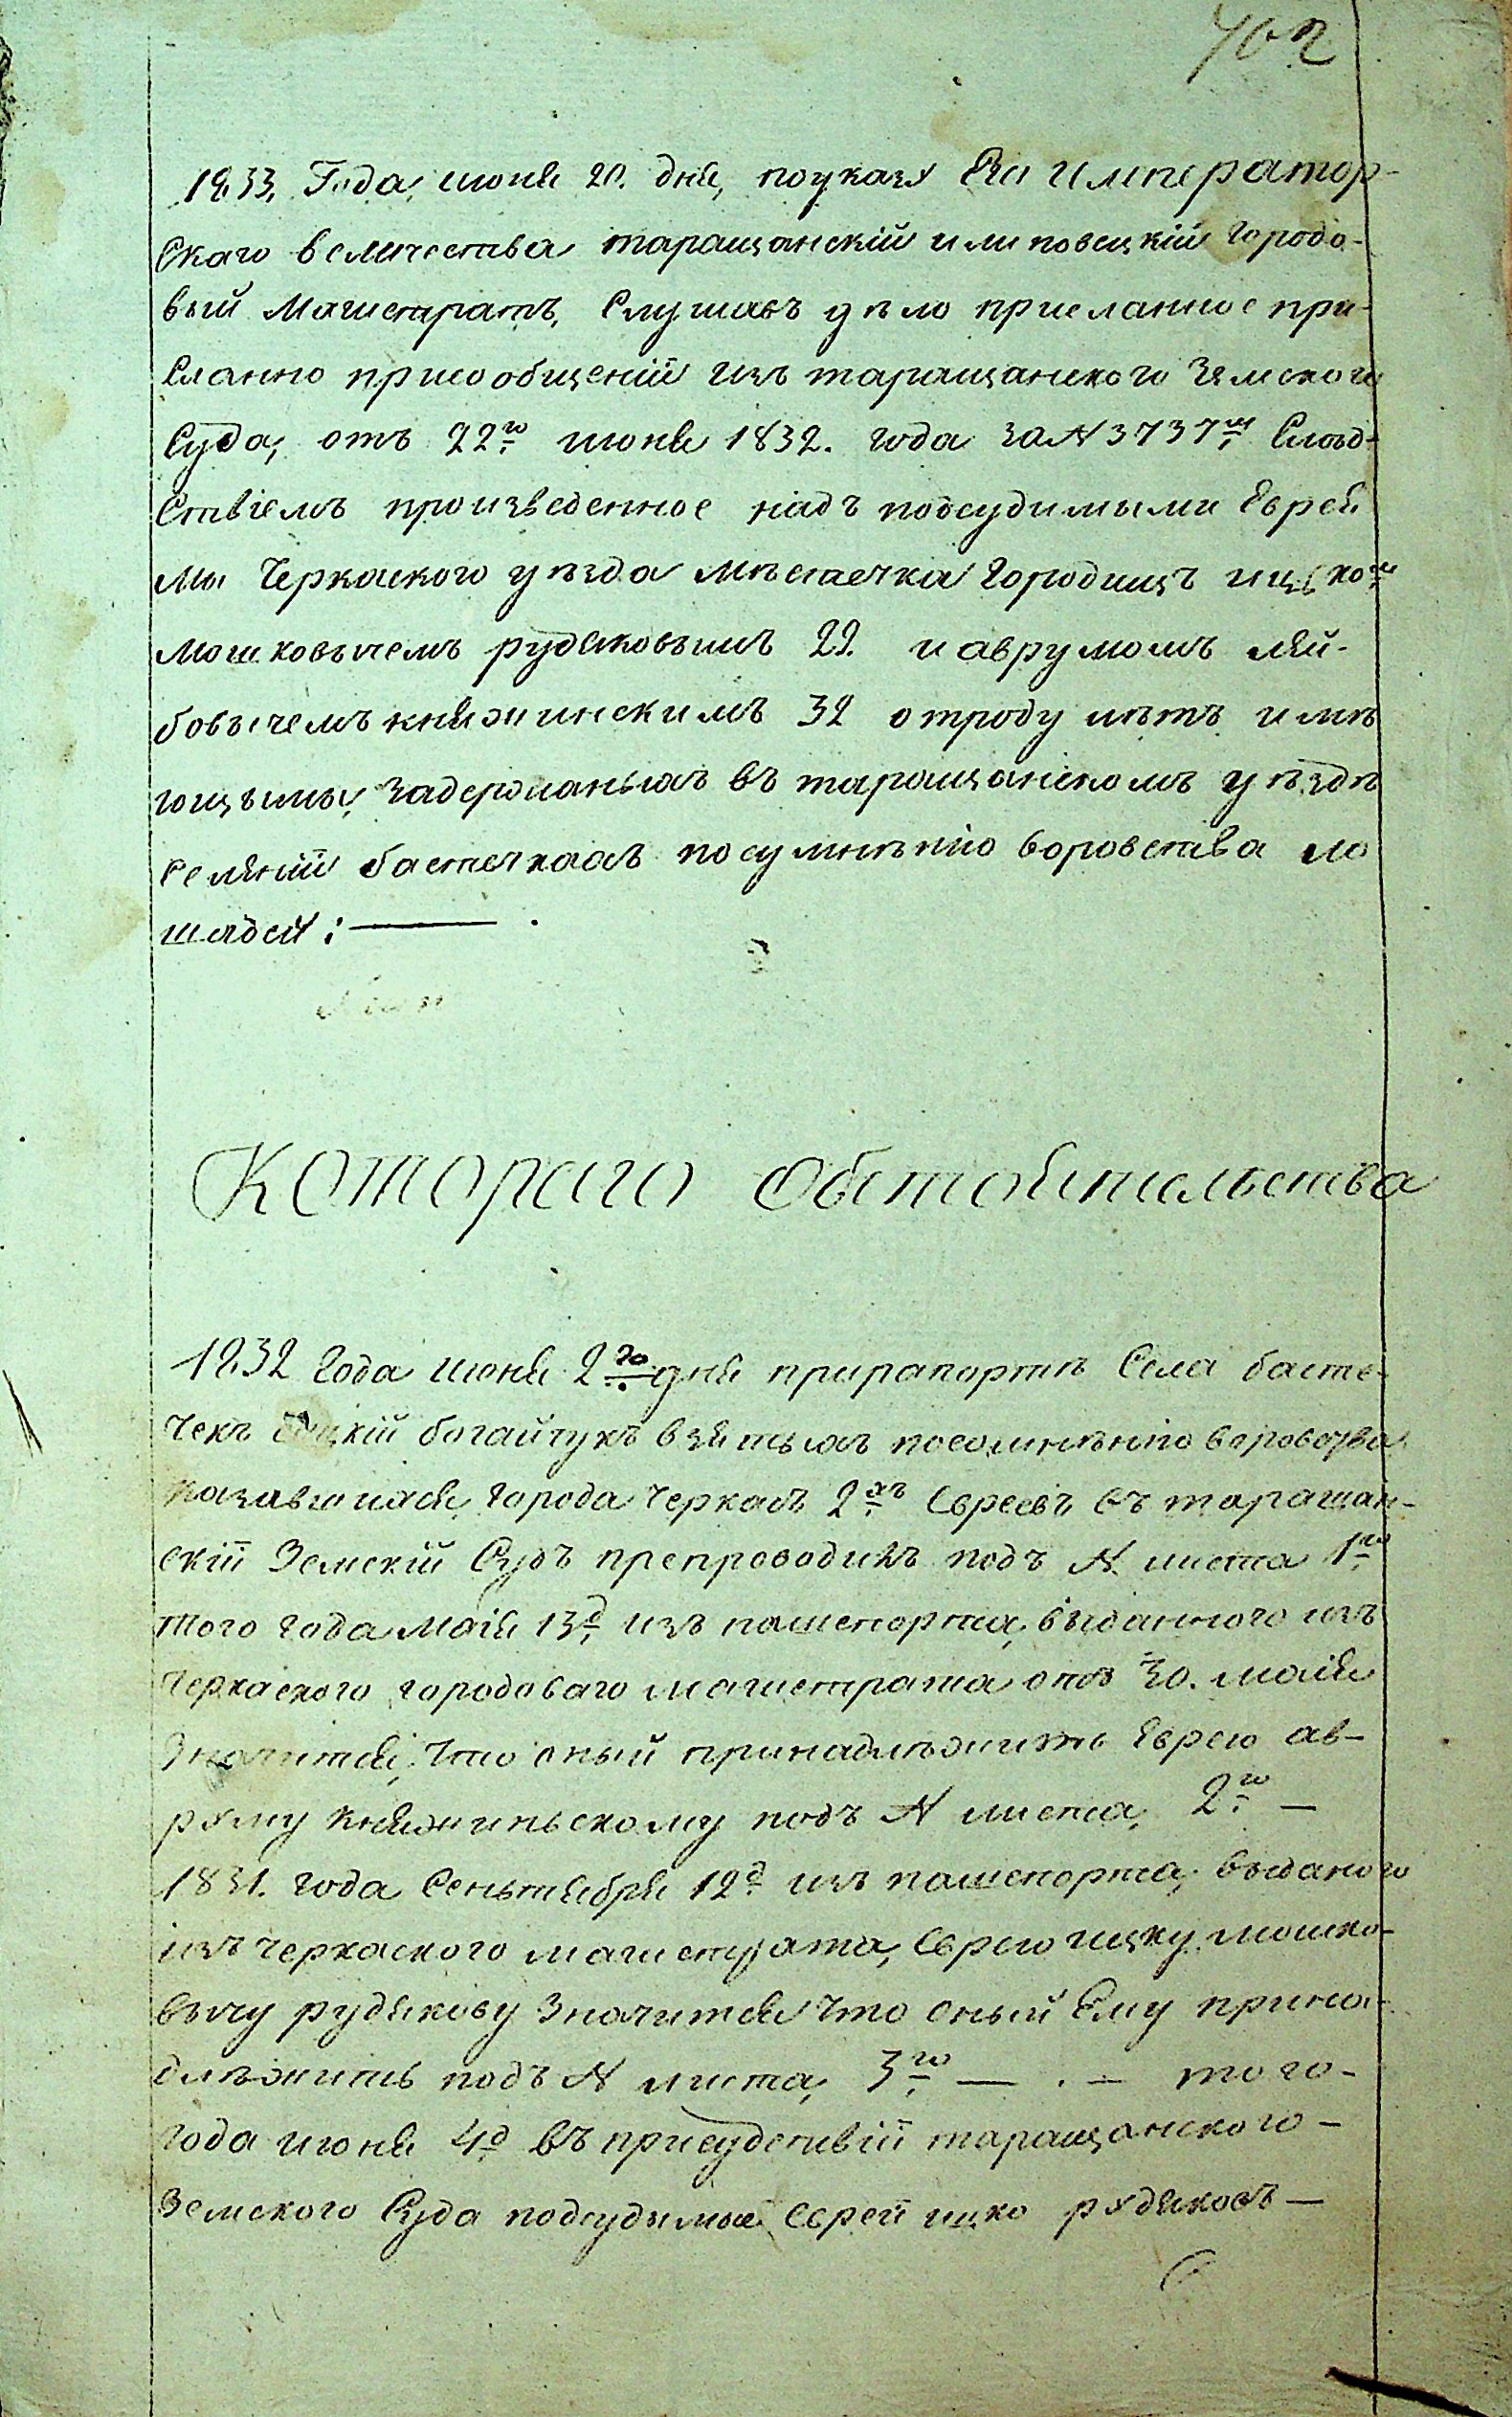 1833, Года, июня 20. дня, по указу Его Император-
скаго величества таращанскій и липовецкій городо-
вый Магистратъ, Слушавъ дѣло присланное при-
сланно присообщеніи изъ таращанского Земского
Суда, отъ 22го июня 1832. года за № 3737м Слѣд-
ствіемъ произведенное надъ подсудимыми Еврея
мы Черкаского уѣзда мѣстечка Городищъ ицькомъ
мошковычемъ рудяковымъ 22. и аврумомъ лей-
бовычемъ княжинскимъ 32 отроду лѣтъ имѣ
ющымы, задержаныхъ въ таращанскомъ уѣздѣ
селеніи бастечкахъ посумнѣнію воровства ло
шадей: —
Котораго обстоятельства
1832 года июня 2го дня прирапортѣ Села басте-
чекъ богайчукъ взятыхъ посомнѣнію воровства
казавшихся города Черкасъ 2хъ Евреевъ въ таращан-
скій Земскій Судъ препроводилъ подъ № листа 1го
того года мая 13д изъ пашепорта, выданного изъ
Черкаского городоваго магистрата отъ 30. мая
Значится, что оный принадлѣжить Еврею ав-
руму княжиньскому подъ № листа, 2го —
1831. года Сеньтября 12д изъ пашепорта, выданого
изъ черкаского магистрата, Еврею ицку мошко-
вычу рудякову Значится что оный Ему прина-
длѣжить подъ № листа, 3го — . — того-
года июня 4д въ присудствіи таращанского —
Земского Суда подсудимые Евреи ицко рудяковъ —